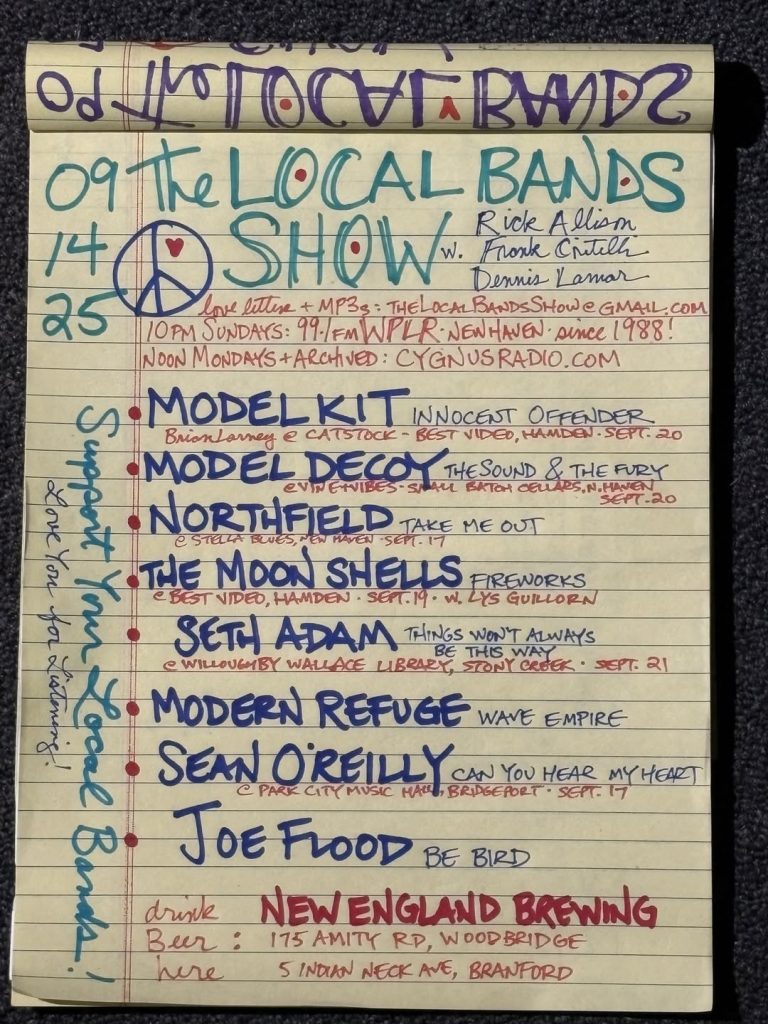 The LOCAL BANDS
09 The LOCAL BANDS
14 SHOW w. Rick Allison
Frank Critelli
25 Dennis Lamar
love letters + MP3s: THELOCALBANDSSHOW@GMAIL.COM
10PM SUNDAYS: 99.1/FM WPLR · NEW HAVEN · since 1988!
NOON MONDAYS + ARCHIVED: CYGNUSRADIO.COM
• MODEL KIT INNOCENT OFFENDER
Brian Larney @ CATSTOCK - BEST VIDEO, HAMDEN · SEPT. 20
• MODEL DECOY THE SOUND & THE FURY
@ VINE + VIBES · SMALL BATCH CELLARS, N. HAVEN
SEPT. 20
• NORTHFIELD TAKE ME OUT
@ STELLA BLUES, NEW HAVEN · SEPT. 17
• THE MOON SHELLS FIREWORKS
@ BEST VIDEO, HAMDEN · SEPT. 19 · W. LYS GUILLORN
• SETH ADAM THINGS WON'T ALWAYS
BE THIS WAY
@ WILLOUGHBY WALLACE LIBRARY, STONY CREEK · SEPT. 21
• MODERN REFUGE WAVE EMPIRE
• SEAN O'REILLY CAN YOU HEAR MY HEART
@ PARK CITY MUSIC HALL, BRIDGEPORT · SEPT. 17
• JOE FLOOD BE BIRD
drink NEW ENGLAND BREWING
Beer : 175 AMITY RD, WOODBRIDGE
here 5 INDIAN NECK AVE, BRANFORD
Support Your Local Bands!
Love You for Listening!